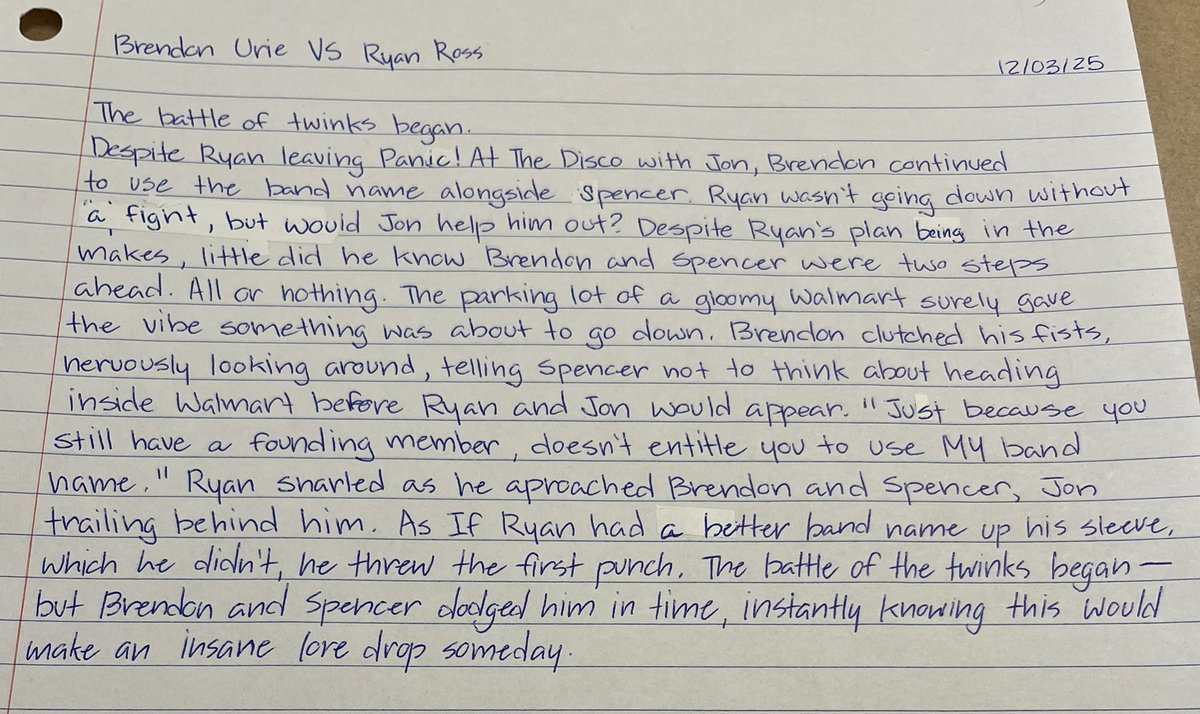 Brendon Urie VS Ryan Ross
12/03/25
The battle of twinks began.
Despite Ryan leaving Panic! At The Disco with Jon, Brendon continued
to use the band name alongside Spencer. Ryan wasn't going down without
a fight, but would Jon help him out? Despite Ryan's plan being in the
makes, little did he know Brendon and Spencer were two steps
ahead. All or nothing. The parking lot of a gloomy Walmart surely gave
the vibe something was about to go down. Brendon clutched his fists,
nervously looking around, telling Spencer not to think about heading
inside Walmart before Ryan and Jon would appear. "Just because you
still have a founding member, doesn't entitle you to use MY band
name." Ryan snarled as he aproached Brendon and Spencer, Jon
trailing behind him. As If Ryan had a better band name up his sleeve,
which he didn't, he threw the first punch. The battle of the twinks began—
but Brendon and Spencer dodged him in time, instantly knowing this would
make an insane lore drop someday.